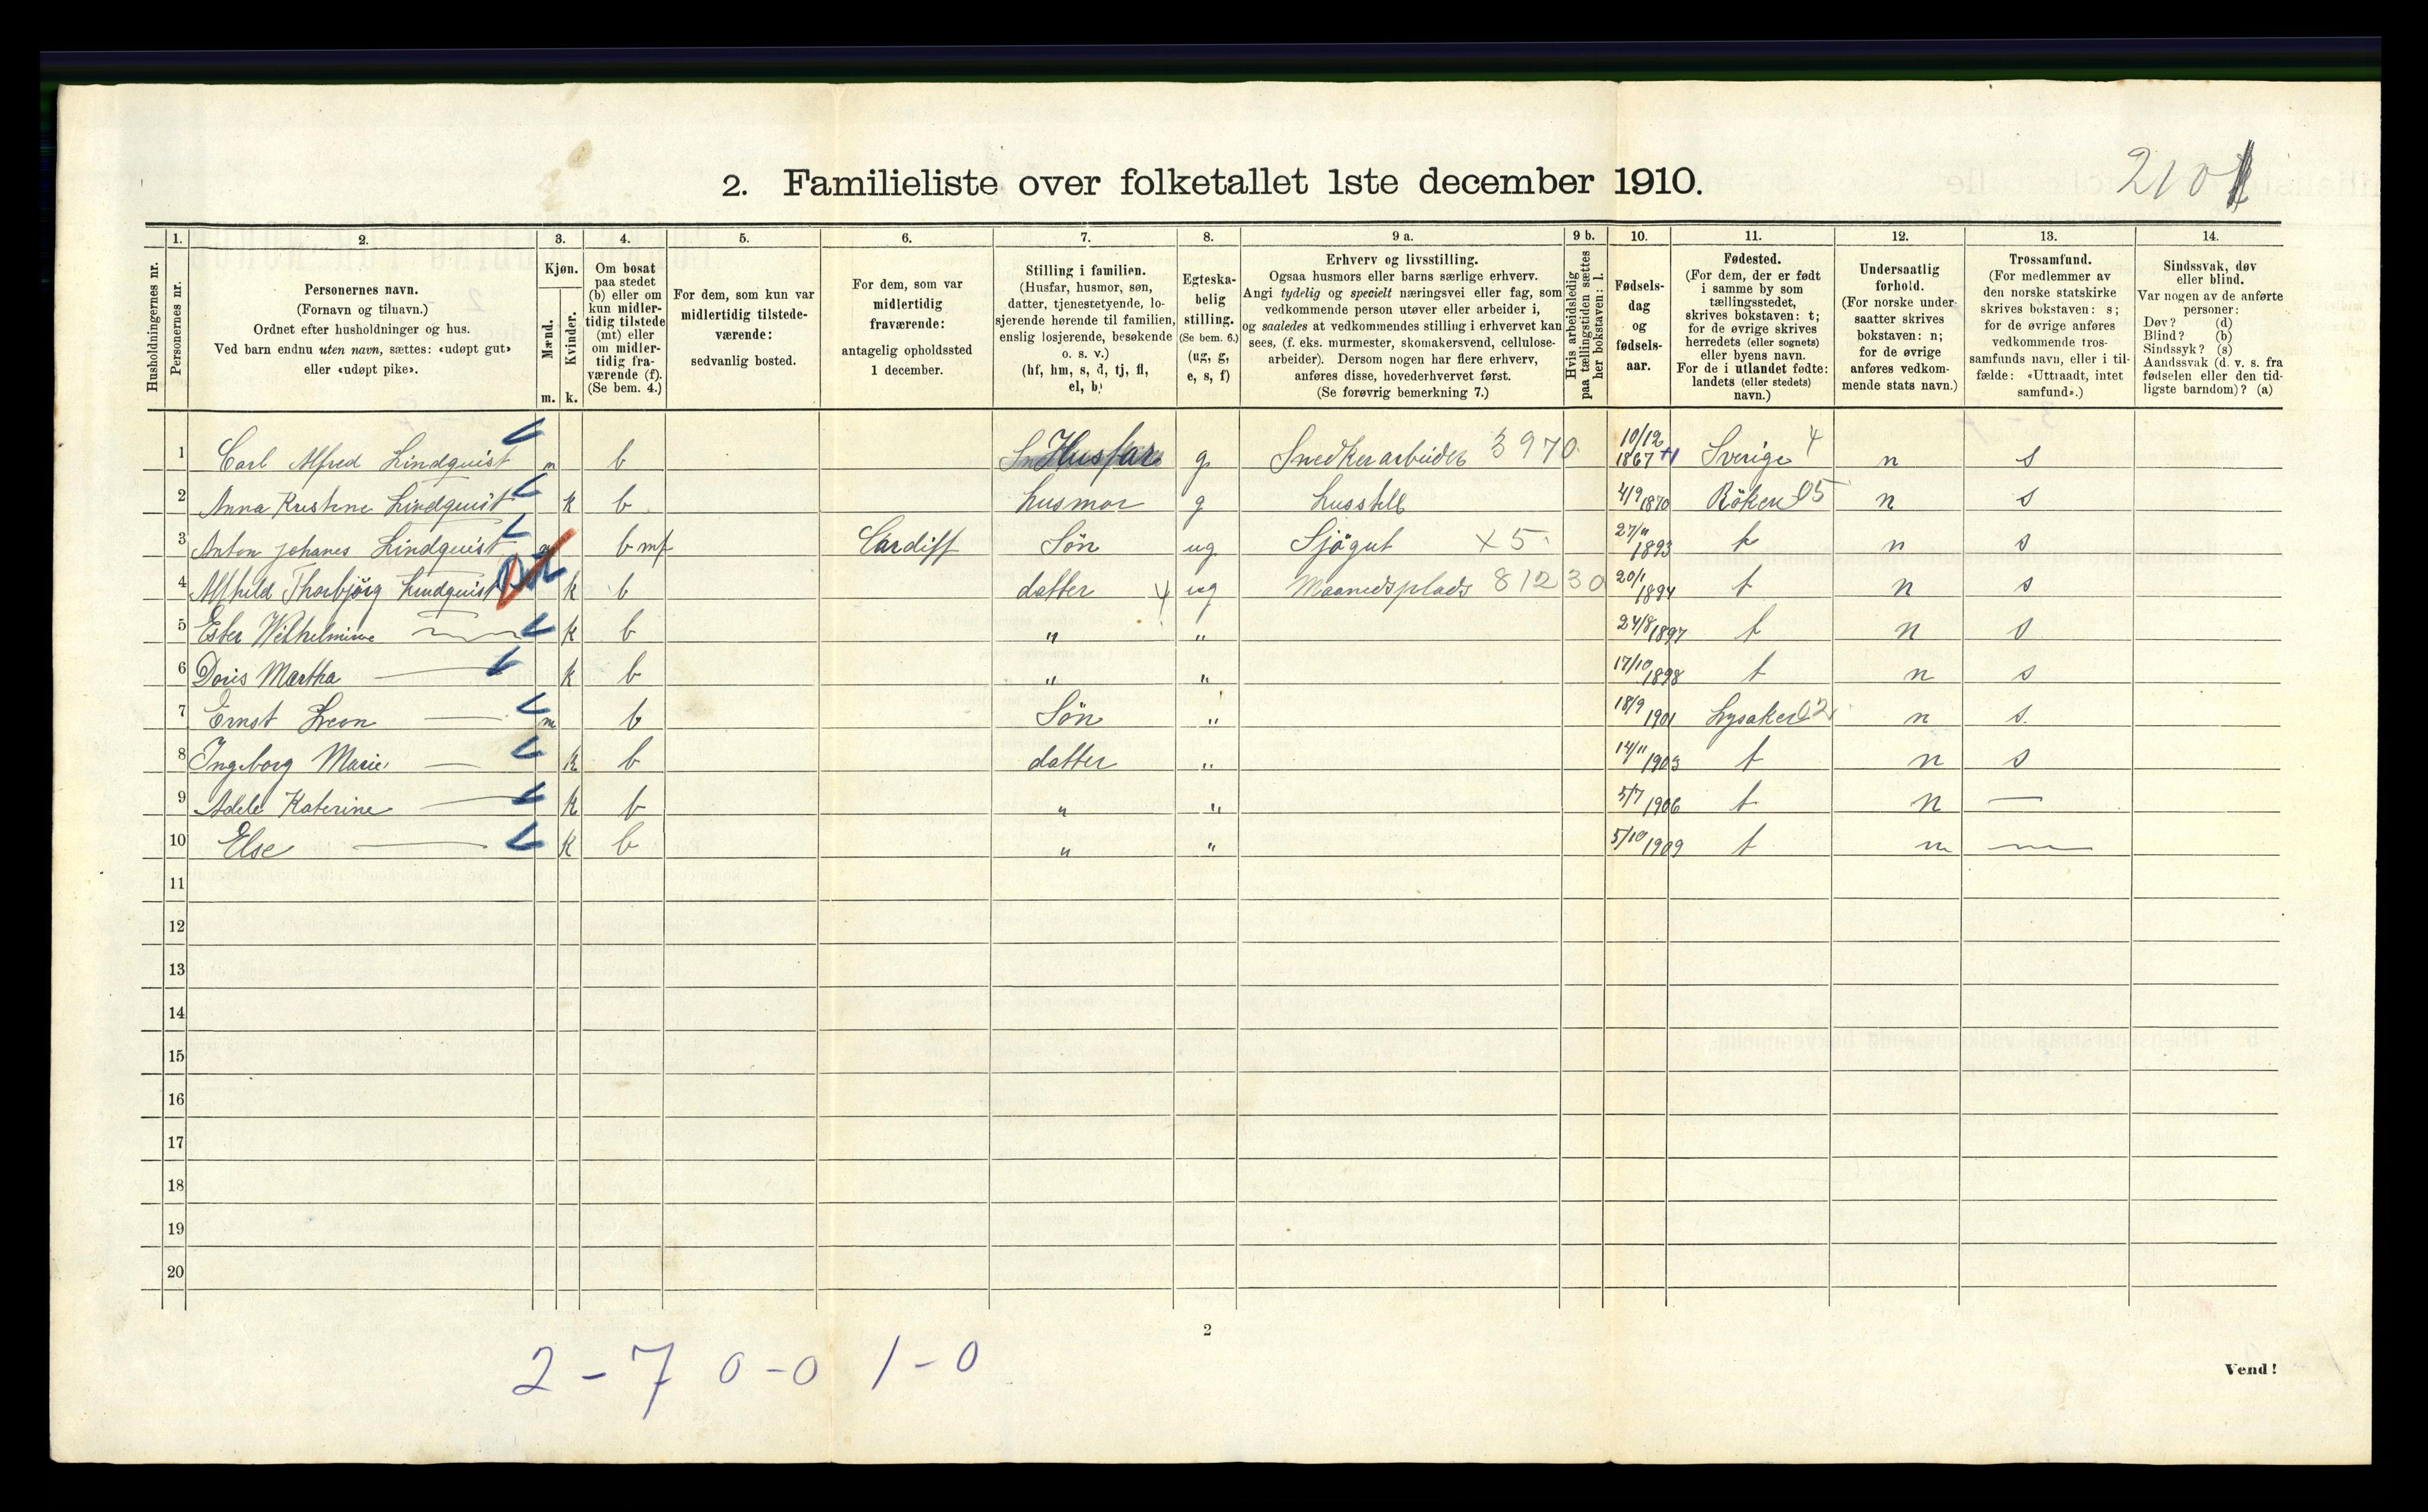 2. Familieliste over folketallet 1ste december 1910.
210
Husholdningernes nr.
1. Personernes nr.
2. Personernes navn.
(Fornavn og tilnavn.)
Ordnet efter husholdninger og hus.
Ved barn endnu uten navn, sættes: «udøpt gut»
eller «udøpt pike».
3. Kjøn.
Mænd. Kvinder.
m. k.
4. Om bosat
paa stedet
(b) eller om
kun midler-
tidig tilstede
(mt) eller
om midler-
tidig fra-
værende (f).
(Se bem. 4.)
5. For dem, som kun var
midlertidig tilstede-
værende:
sedvanlig bosted.
6. For dem, som var
midlertidig
fraværende:
antagelig opholdssted
1 december.
7. Stilling i familien.
(Husfar, husmor, søn,
datter, tjenestetyende, lo-
sjerende hørende til familien,
enslig losjerende, besøkende
o. s. v.)
(hf, hm, s, d, tj, fl,
el, b)
8. Egteska-
belig
stilling.
(Se bem. 6.)
(ug, g,
e, s, f)
9 a. Erhverv og livsstilling.
Ogsaa husmors eller barns særlige erhverv.
Angi tydelig og specielt næringsvei eller fag, som
vedkommende person utøver eller arbeider i,
og saaledes at vedkommendes stilling i erhvervet kan
sees, (f. eks. murmester, skomakersvend, cellulose-
arbeider). Dersom nogen har flere erhverv,
anføres disse, hovederhvervet først.
(Se forøvrig bemerkning 7.)
9 b. Hvis arbeidsledig
paa tællingstiden sættes
her bokstaven: l.
10. Fødsels-
dag
og
fødsels-
aar.
11. Fødested.
(For dem, der er født
i samme by som
tællingsstedet,
skrives bokstaven: t;
for de øvrige skrives
herredets (eller sognets)
eller byens navn.
For de i utlandet fødte:
landets (eller stedets)
navn.)
12. Undersaatlig
forhold.
(For norske under-
saatter skrives
bokstaven: n;
for de øvrige
anføres vedkom-
mende stats navn.)
13. Trossamfund.
(For medlemmer av
den norske statskirke
skrives bokstaven: s;
for de øvrige anføres
vedkommende tros-
samfunds navn, eller i til-
fælde: «Uttraadt, intet
samfund».)
14. Sindssvak, døv
eller blind.
Var nogen av de anførte
personer:
Døv? (d)
Blind? (b)
Sindssyk? (s)
Aandssvak (d. v. s. fra
fødselen eller den tid-
ligste barndom)? (a)
1 Carl Alfred Lindquist m b Husfar g Snedkerarbeider 3970 10/12 1867 Sverige 4 n s
2 Anna Kristine Lindquist k b husmor g husstell 4/9 1870 Röken 05 n s
3 Anton Johanes Lindquist b mf Cardiff Sön ug Sjögut X5 27/11 1893 t n s
4 Alfhild Thorbjörg Lindquist k b datter ug Maanedsplads 81230 20/1 1894 t n s
5 Ester Wilhelmine k b " " 24/8 1897 t n s
6 Doris Martha — k b " " 17/10 1898 t n s
7 Ernst Leon — m b Sön " 18/9 1901 Lysaker 02 n s
8 Ingeborg Marie — k b datter " 14/11 1903 t n s
9 Adele Katerine — k b " " 5/7 1906 t n —
10 Else — k b " " 5/10 1909 t n —
11
12
13
14
15
16
17
18
19
20
2
2 - 7 0 - 0 1 - 0
Vend!